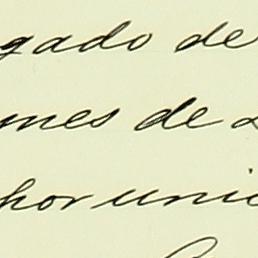 gado de
mes de
por unic